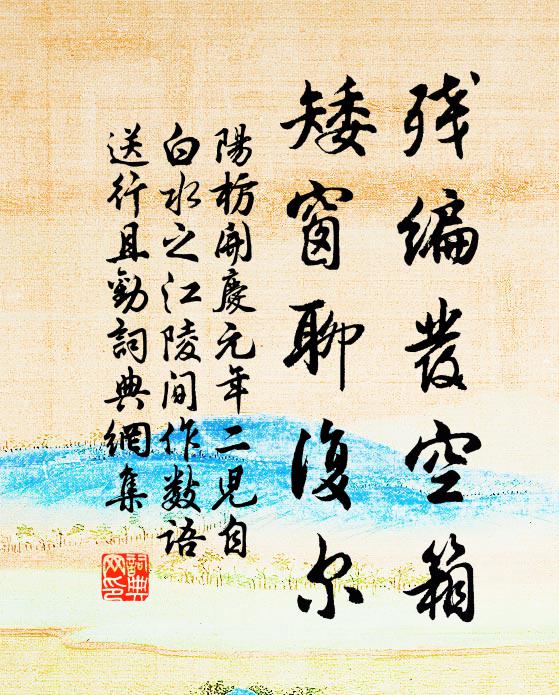 残编发空箱
矮窗聊復尔
陽枋開慶元年二児自
白水之江陵间作数语
送行且勸詞典網集
詞典
网印